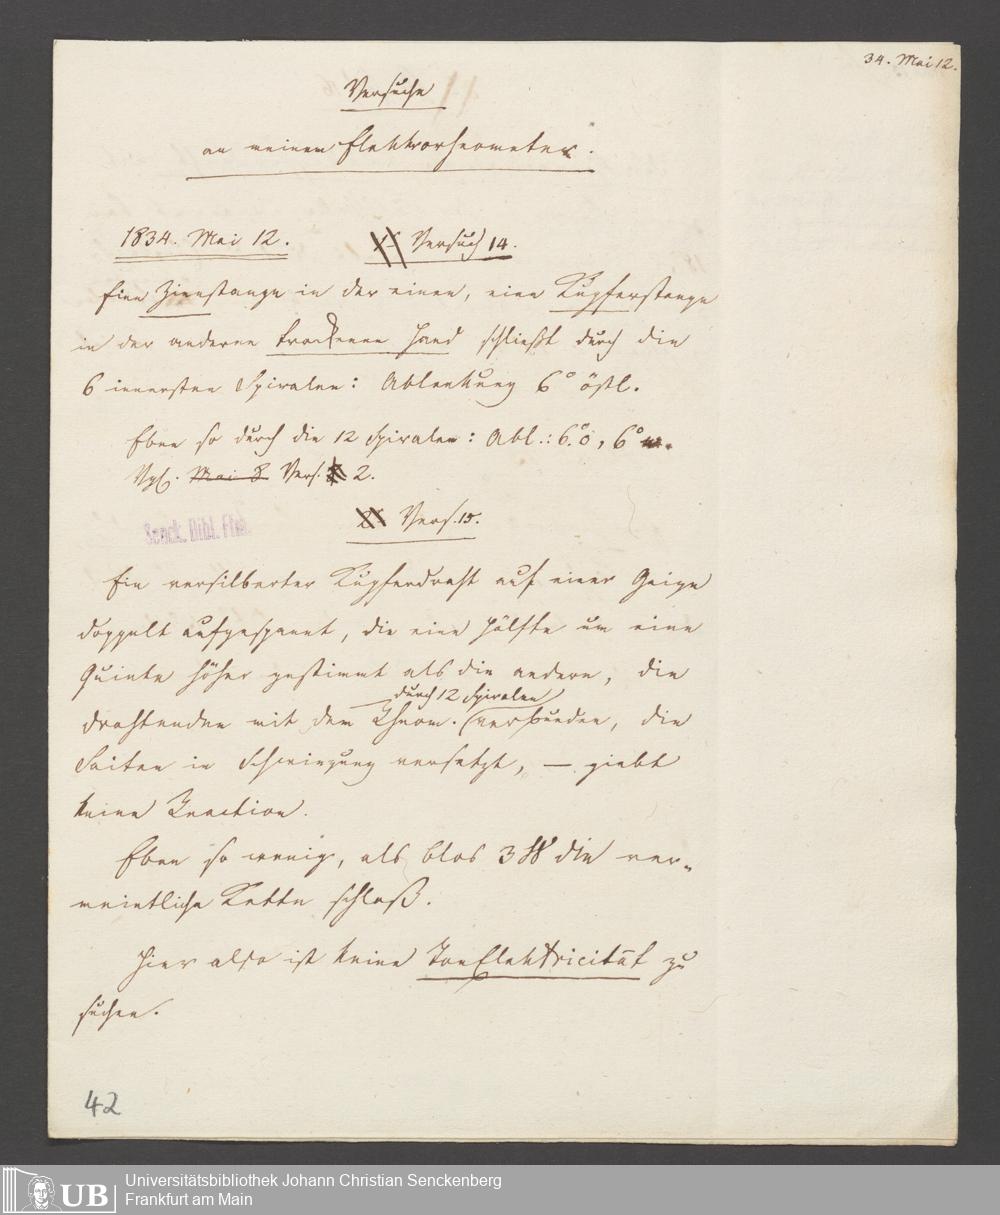 34. Mai 12.
Versuche
an meinem Elektrorheometer.
1834. Mai 12. Versuch 14.
Eine Zinnstange in der einen, eine Kupferstange
in der anderen trockenen Hand schließt durch die
6 innersten Spiralen: Ablenkung 6° östl.
Eben so durch die 12 Spiralen: Abl.: 6.° ö, 6° w.
Vgl. Mai 8 Vers. 2.
Vers. 15.
Senck. Bibl. Ffm.
Ein versilberter Kupferdraht auf einer Geige
doppelt aufgespannt, die eine Hälfte um eine
Quinte höher gestimmt als die andere, die
durch 12 Spiralen
Drahtenden mit dem Rheom. verbunden, die
Saiten in Schwingung versetzt, — giebt
keine Reaction.
Eben so wenig, als blos 3 die ver-
meintliche Kette schloß.
Hier also ist keine TonElektricität zu
suchen.
42
UB
Universitätsbibliothek Johann Christian Senckenberg
Frankfurt am Main